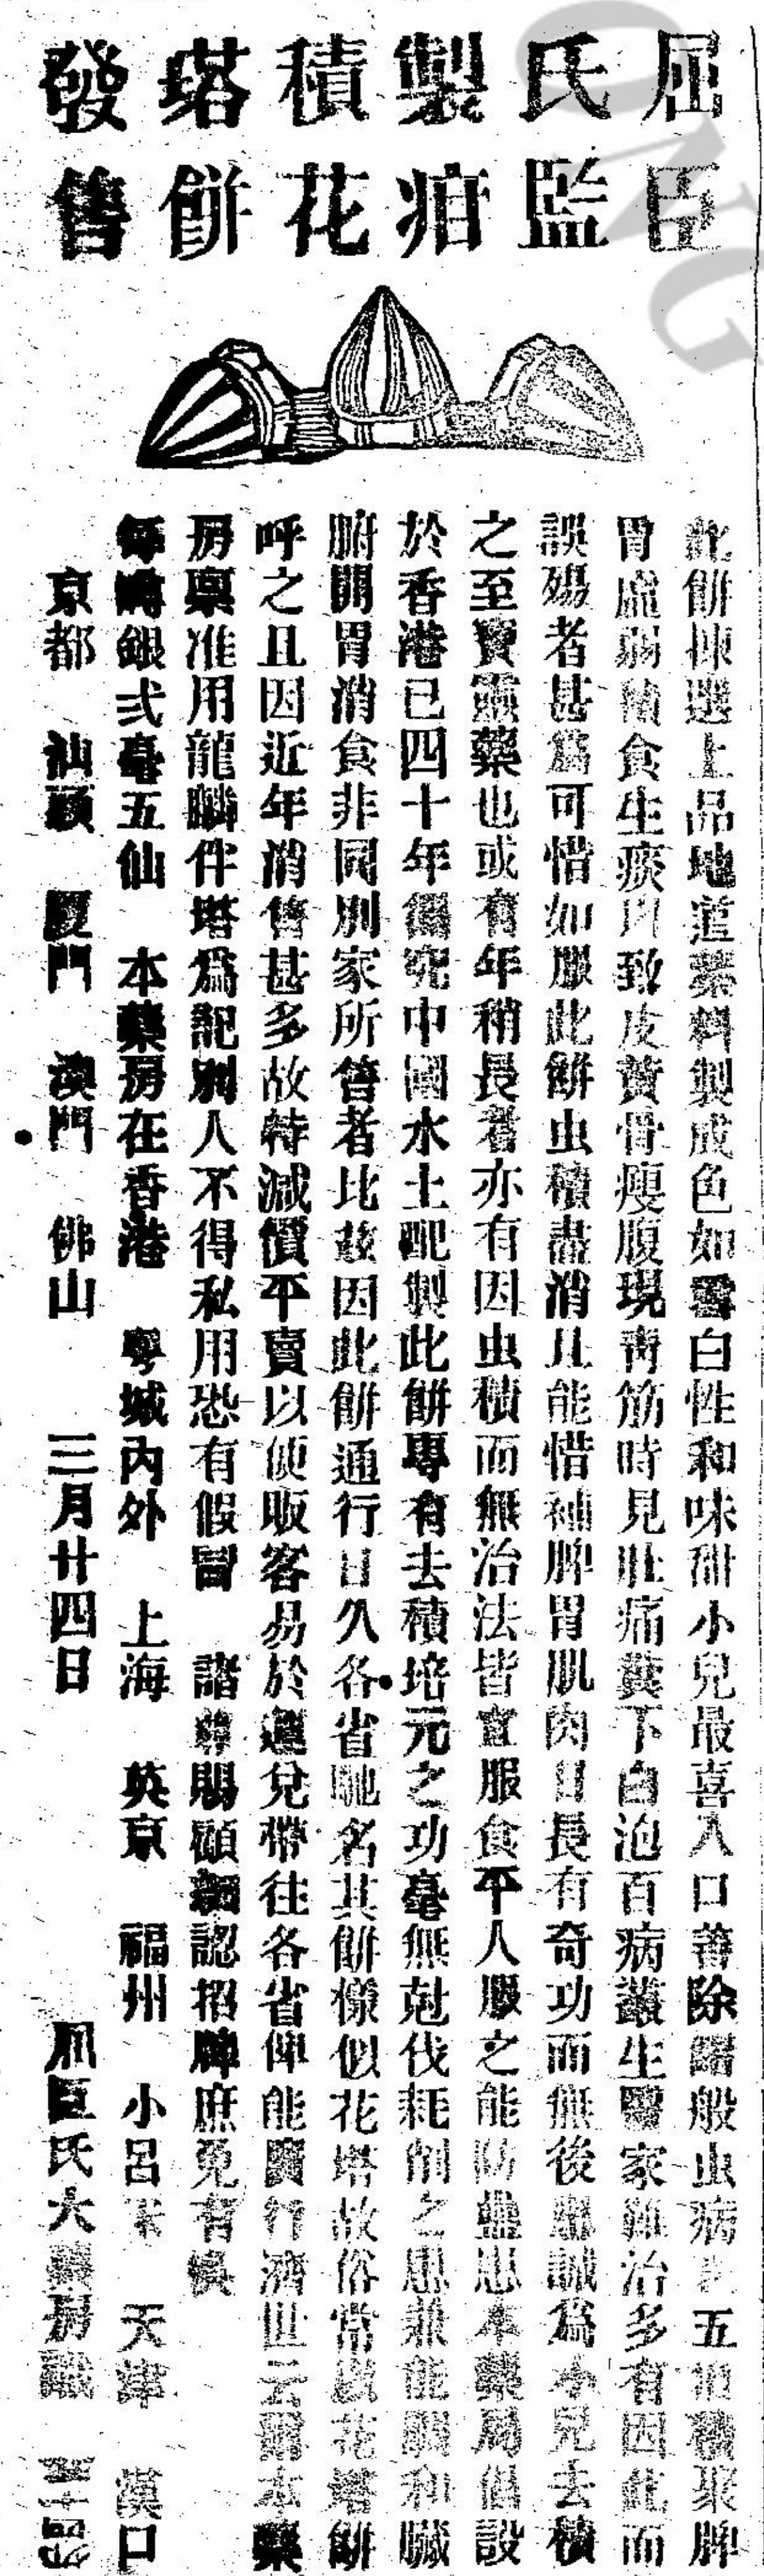 屈臣
氏監
製疳
積花
塔餅
發售
此餅揀選上品地道藥料製成色如雪白性和味甜小兒最喜入口善除諸般虫病 五疳積聚脾
胃虛弱積食生痰以致皮黃骨瘦腹現靑筋時見肚痛糞下白泡百病叢生醫家難治多有因此而
誤殤者甚爲可惜如服此餅虫積盡消且能 補脾胃肌肉日長有奇功而無後患誠爲小兒去積
之至寶靈藥也或有年稍長者亦有因虫積而無治法皆宜服食平人服之能防蠱患本藥局倡設
於香港已四十年 究中國水土配製此餅專有去積培元之功毫無尅伐耗削之患兼能調和臟
腑開胃消食非同別家所 者比茲因此餅通行日久各省馳名其餅樣似花塔故俗常以花塔餅
呼之且因近年消售甚多故特減價平賣以便販客易於 兌帶往各省俾能廣行濟世云爾本藥
房稟准用龍麟伴塔爲記別人不得私用恐有假冒 諸尊賜顧 認招牌庶免有悞
每 銀弍毫五仙 本藥房在香港 粤城內外 上海 英京 福州 小呂宋 天津 漢口
京都 汕頭 厦門 澳門 佛山 三月廿四日 屈臣氏大藥房